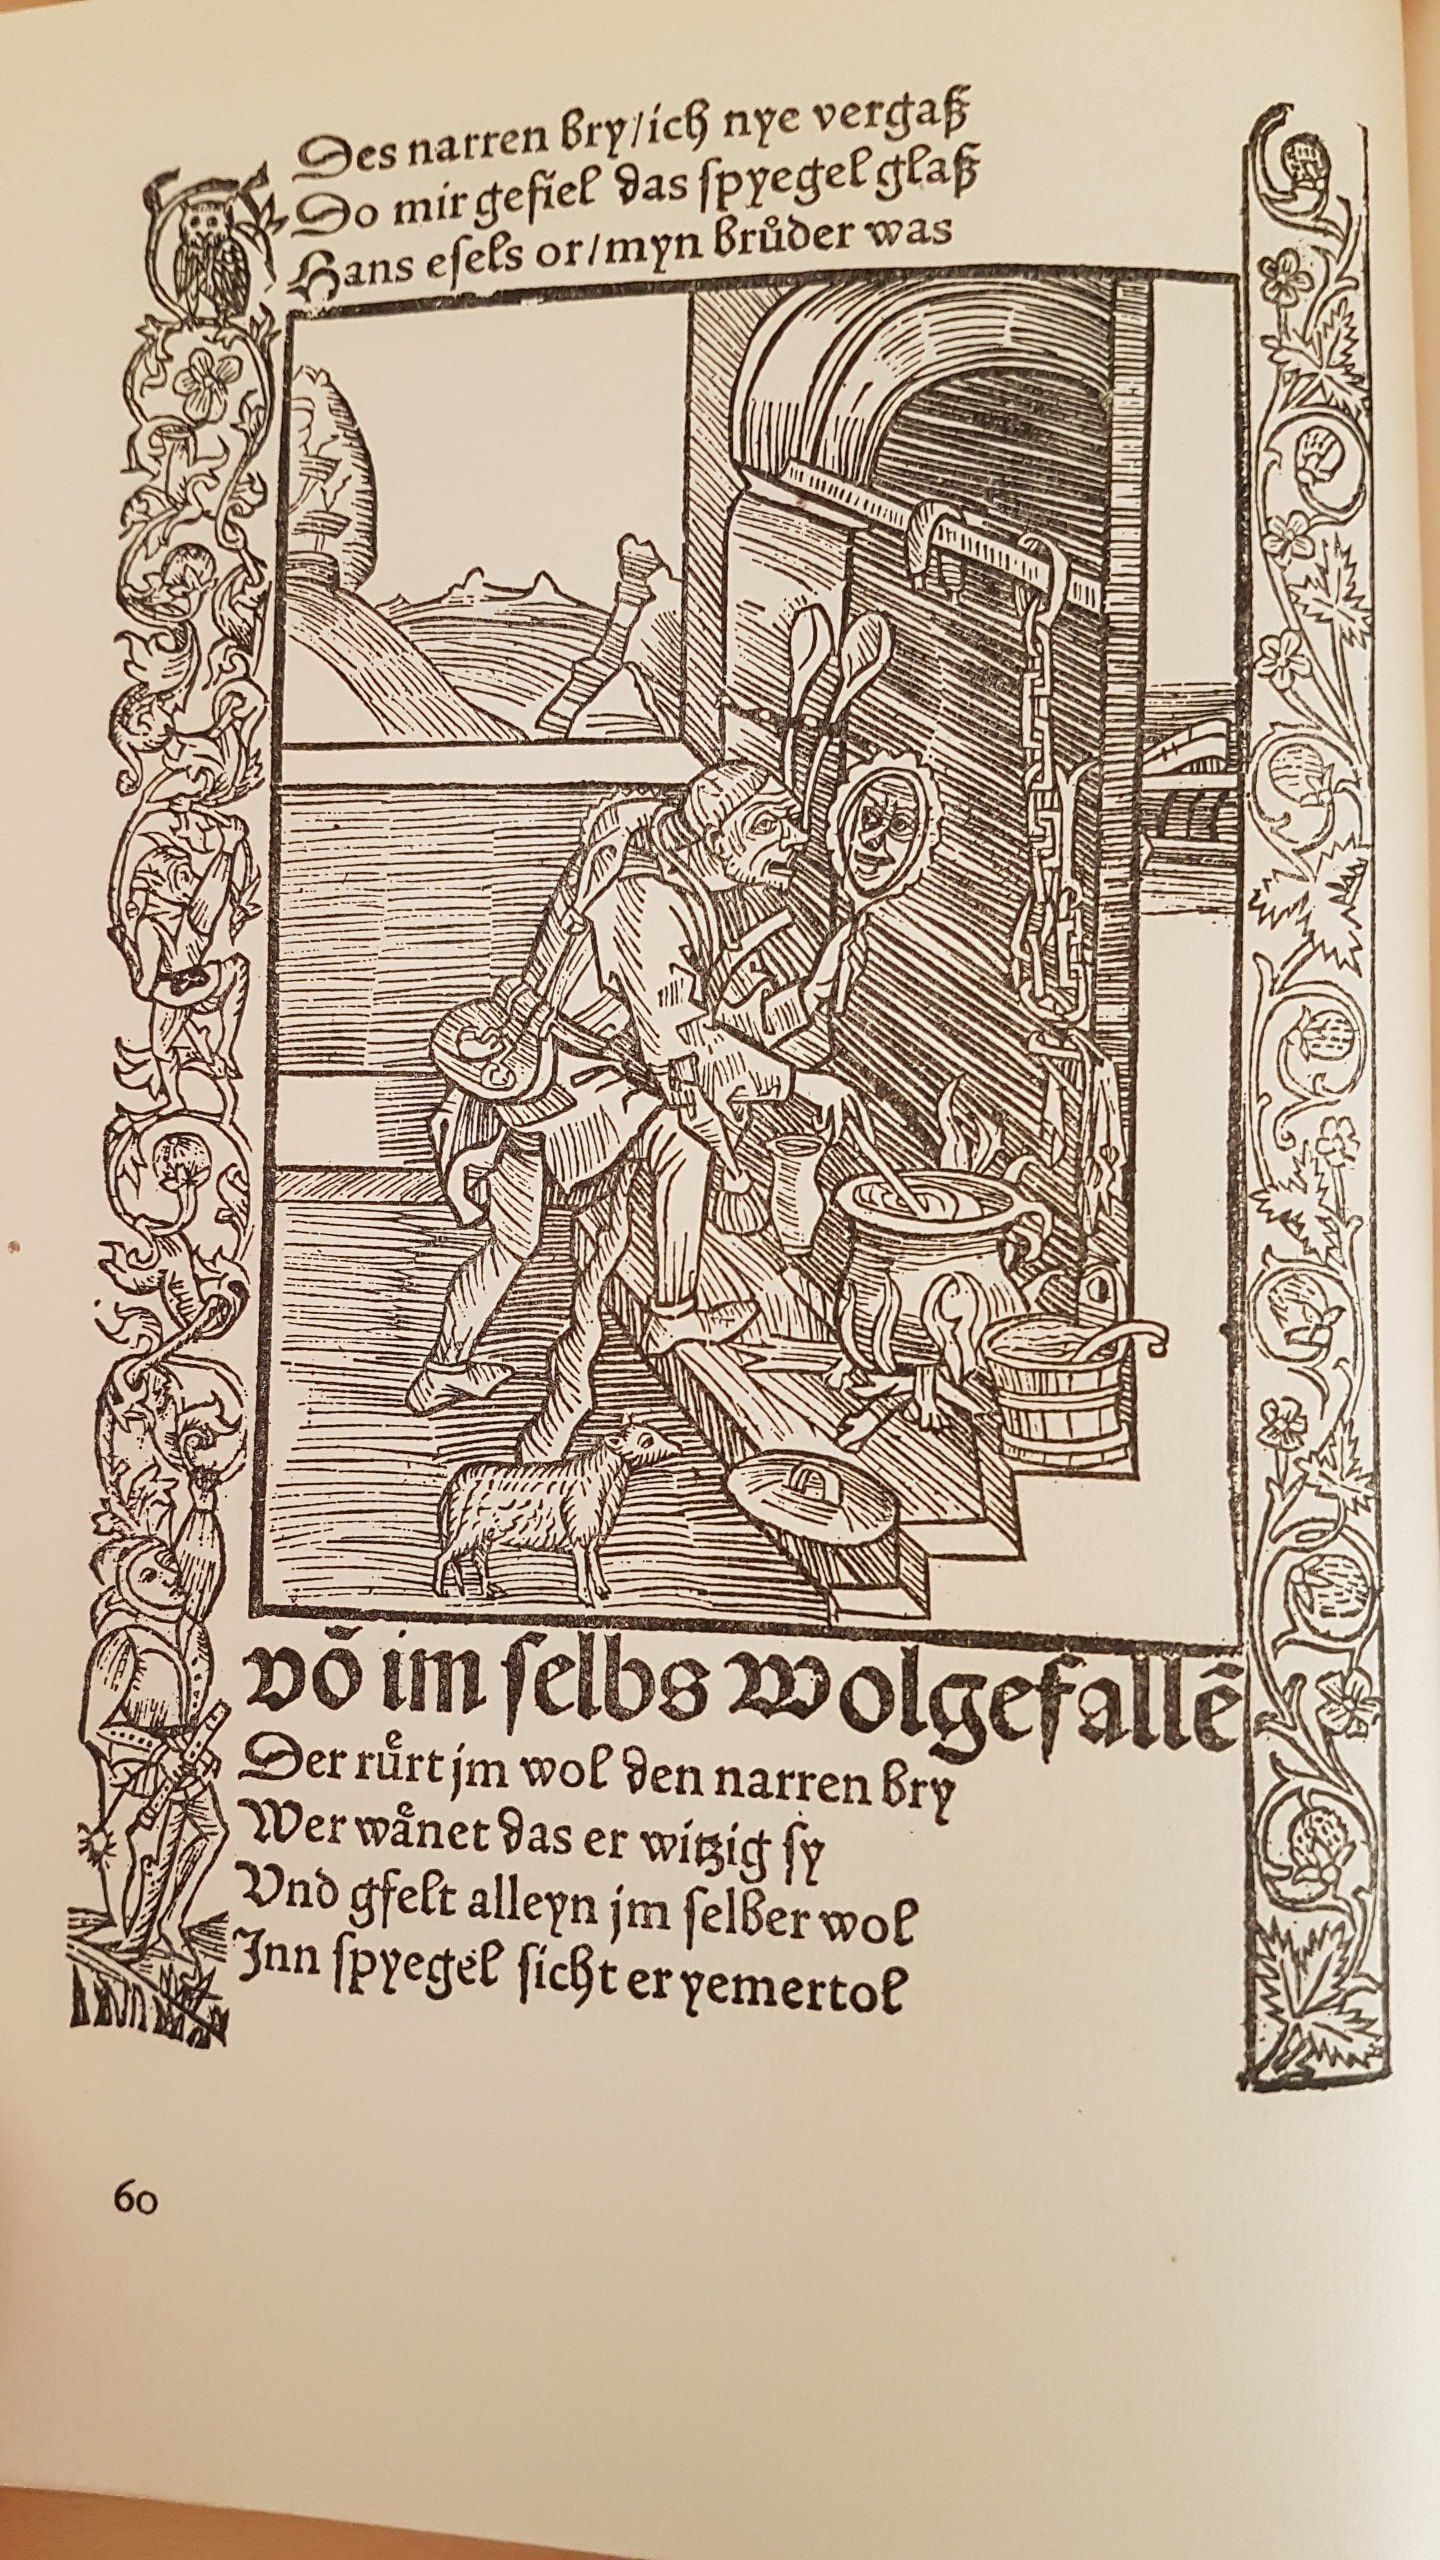 Des narren bry/ich nye vergaß
Do mir gefiel das ſpyegel glaß
Hans eſels or/myn bruͦder was
võ im ſelbs wolgefallẽ
Der ruͤrt jm wol den narren bry
Wer waͤnet das er witzig ſy
Vnd gfelt alleyn jm ſelber wol
Jnn ſpyegel ſicht er yemertol
60